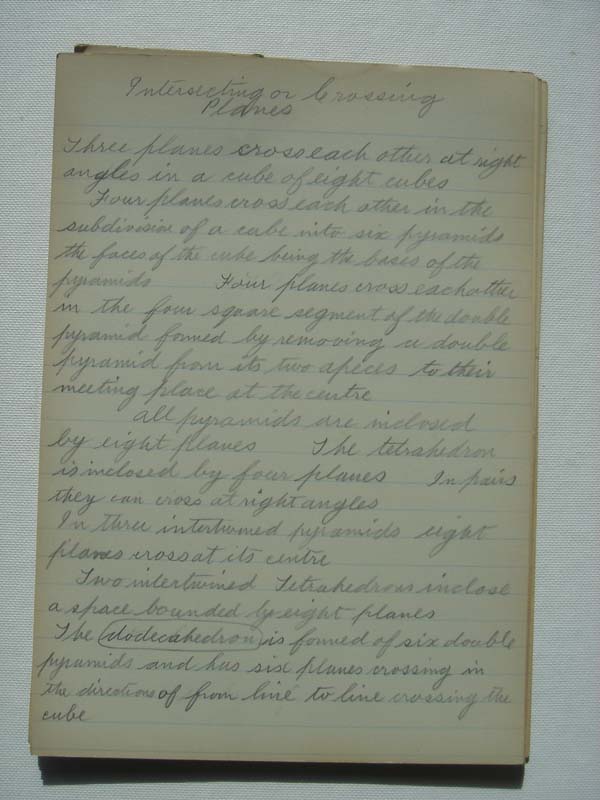 Intersecting or Crossing
Planes
Three planes cross each other at right
angles in a cube of eight cubes
Four planes cross each other in the
subdivision of a cube into six pyramids
the faces of the cube being the bases of the
pyramids Four planes cross each other
in the four square segment of the double
pyramid formed by removing a double
pyramid from its two apeces to their
meeting place at the centre
all pyramids are inclosed
by eight planes The tetrahedron
is inclosed by four planes In pairs
they can cross at right angles
In three intertwined pyramids eight
planes cross at its centre
Two intertwined Tetrahedrons inclose
a space bounded by eight planes
The dodecahedron is formed of six double
pyramids and has six planes crossing in
the directions of from line to line crossing the
cube